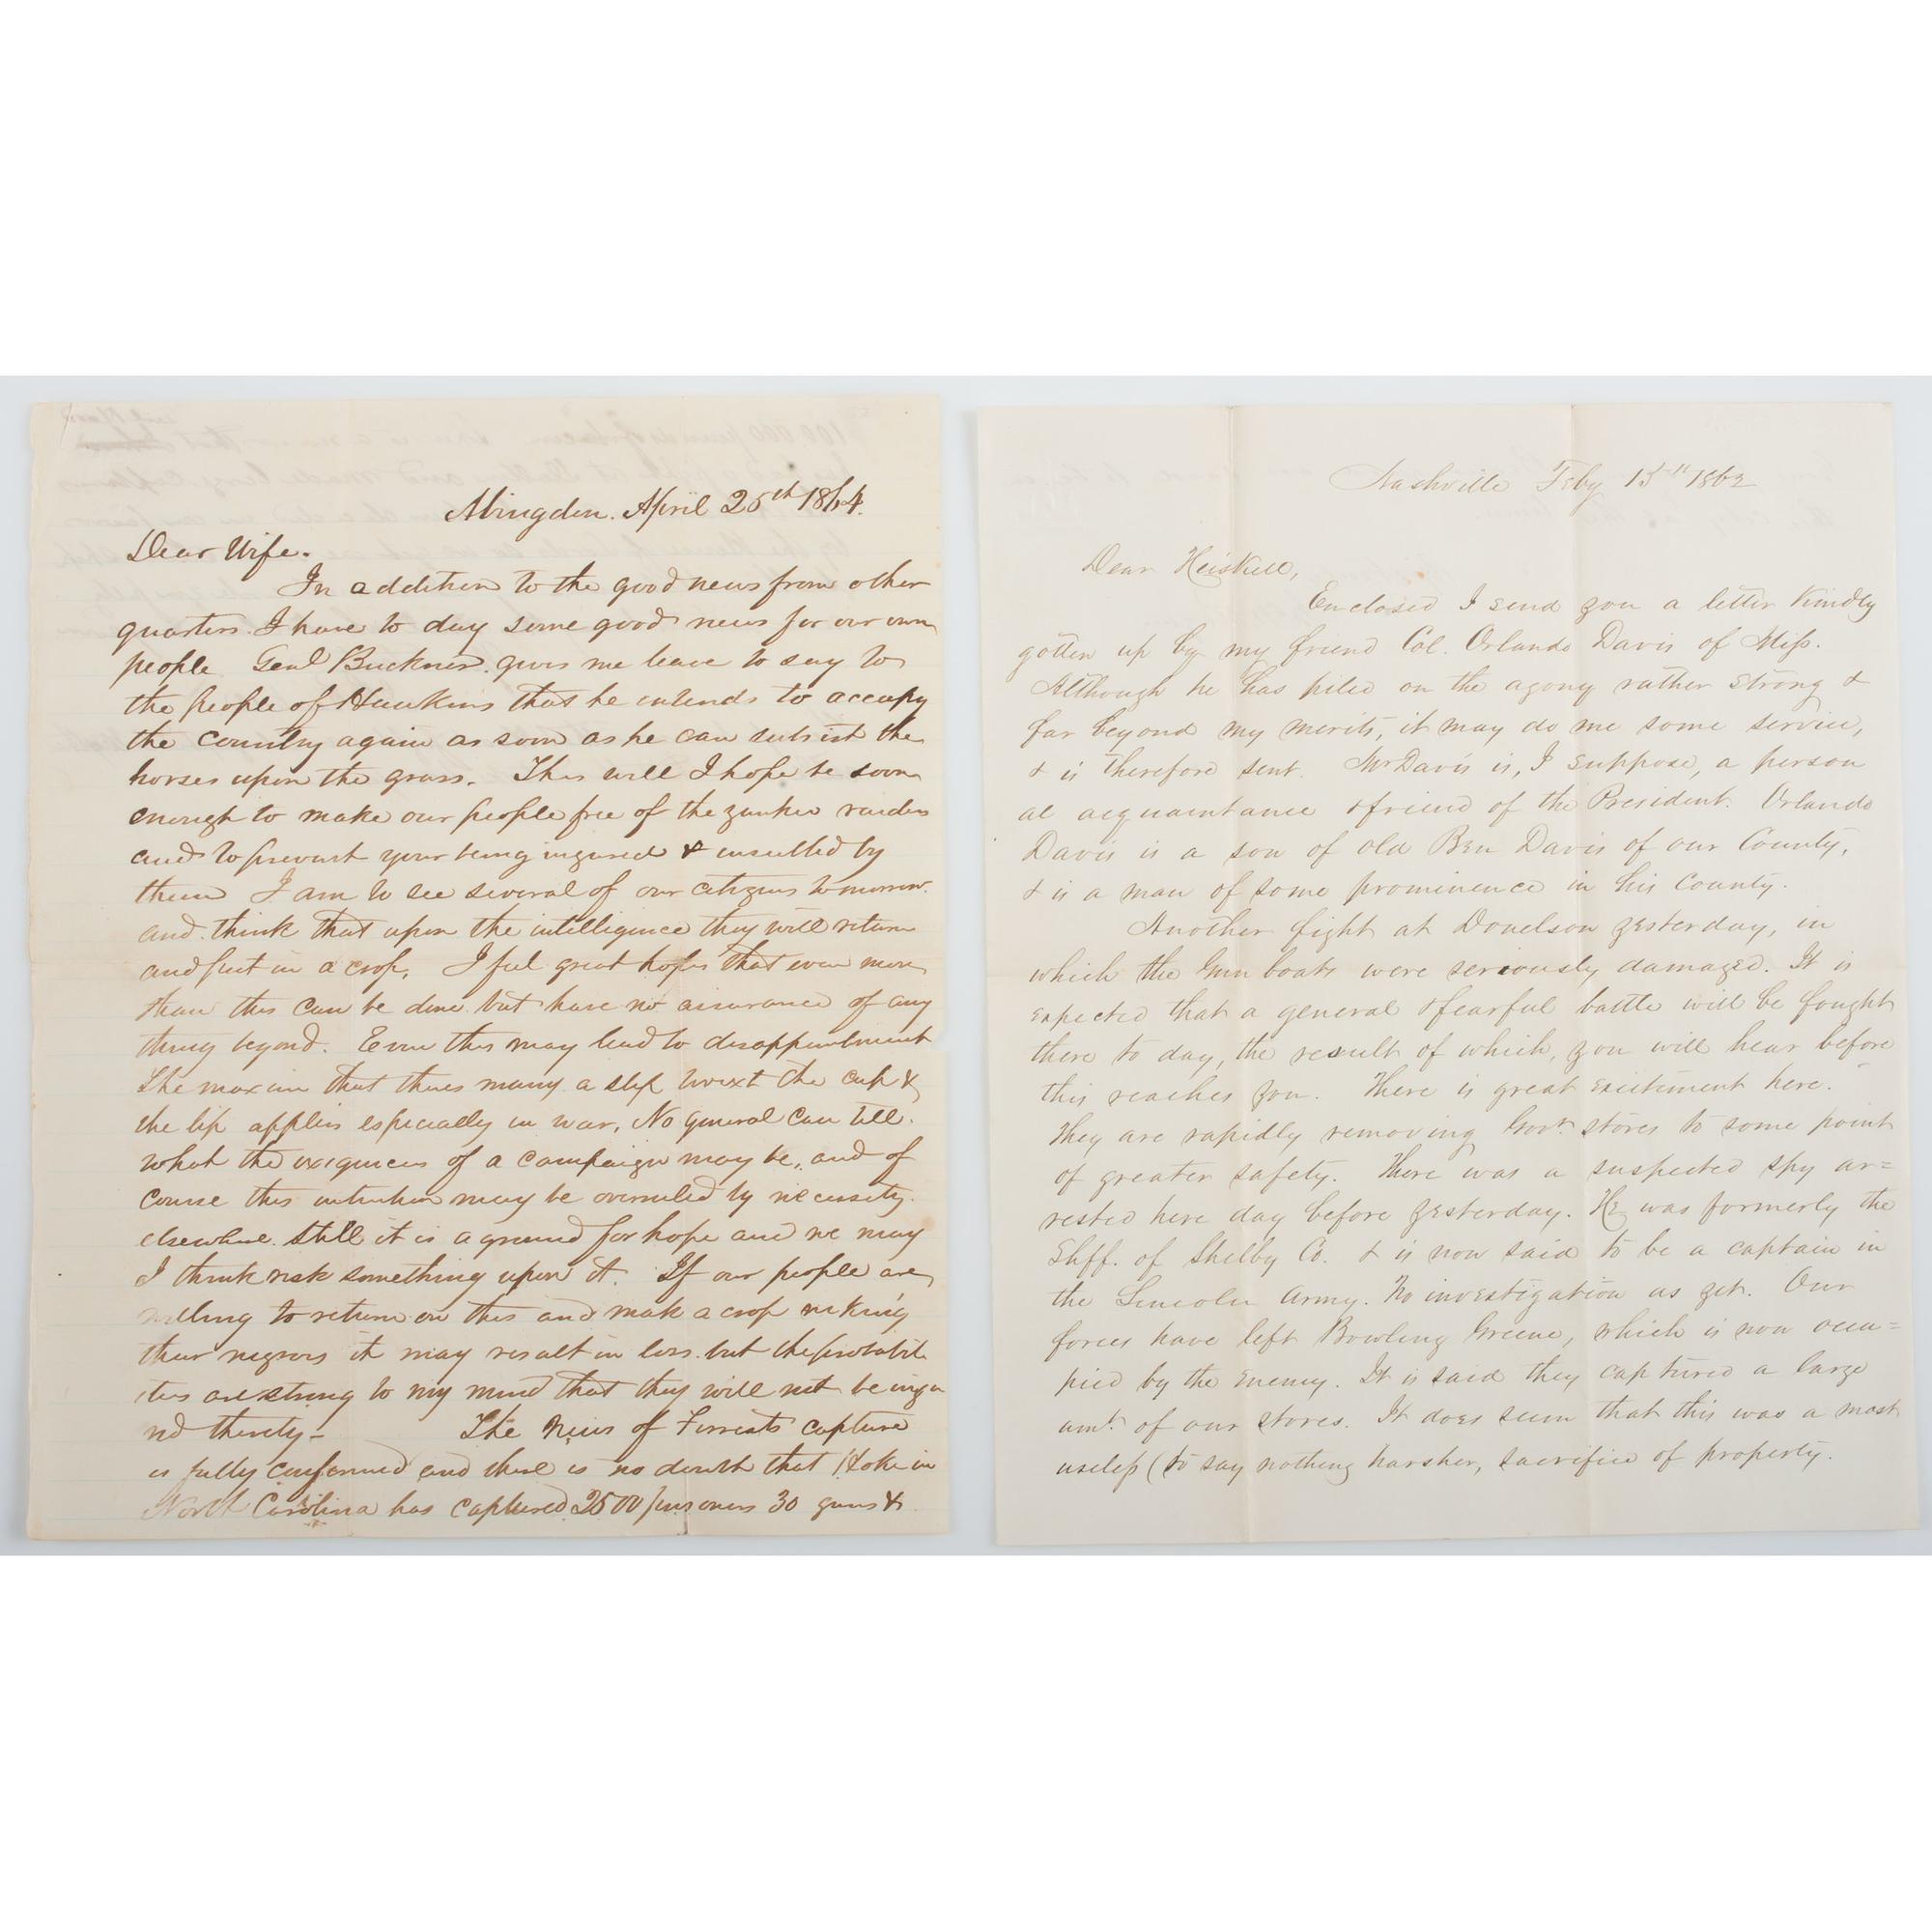 Abingdon. April 25th 1864.
Dear Wife.
In addition to the good news from other
quarters I have to day some good news for our own
people Genl Buckner gives me leave to say to
the people of Hawkins that he intends to occupy
the country again as soon as he can subsist the
horses upon the grass. This will I hope be soon
enough to make our people free of the yankee raiders
and to prevent your being injured & insulted by
them I am to see several of our citizens tomorrow.
and think that upon the intelligence they will return
and put in a crop. I feel great hopes that even more
than this can be done but have no assurance of any
thing beyond. Even this may lead to disappointment
The maxim that theres many a slip twixt the cup &
the lip applies especially in war, No general can tell.
what the exigences of a campaign may be, and of
course this intention may be overruled by necessity.
elsewhere. Still it is a ground for hope and we may
I think risk something upon it. If our people are
willing to return on this and make a crop risking
their negroes it may result in loss but the probabil
ities are strong to my mind that they will not be inju
red thereby - The news of Forrests capture
is fully confirmed and there is no doubt that Hoke in
North Carolina has captured 2500 prisoners 30 guns &
Nashville Feby 15th 1862
Dear Heiskell,
Enclosed I send you a letter kindly
gotten up by my friend Col. Orlando Davis of Miss.
Although he has piled on the agony rather strong &
far beyond my merits, it may do me some service,
& is therefore sent. Mr Davis is, I suppose, a person
al acquaintance & friend of the President. Orlando
Davis is a son of old Ben Davis of our County,
& is a man of some prominence in his County.
Another fight at Donelson yesterday, in
which the Gun boats were seriously damaged. It is
expected that a general & fearful battle will be fought
there to day, the result of which, you will hear before
this reaches you. There is great excitement here.
They are rapidly removing Govt. stores to some point
of greater safety. There was a suspected spy ar=
rested here day before yesterday. He was formerly the
Shff. of Shelby Co. & is now said to be a captain in
the Lincoln Army. No investigation as yet. Our
forces have left Bowling Greene, which is now occu=
pied by the enemy. It is said they captured a large
amt. of our stores. It does seem that this was a most
useless (to say nothing harsher, sacrifice of property.